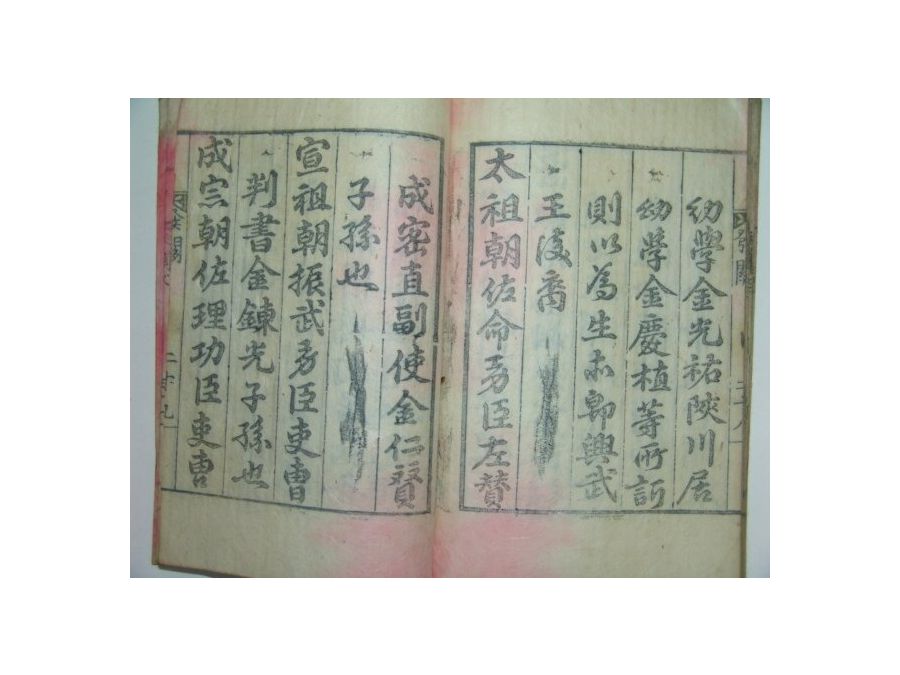 幼學金光祐陜川居
幼學金慶植等所訴
則以爲生亦卽興武
王後裔
太祖朝佐命功臣左賛
成密直副使金仁賛
子孫也
宣祖朝振武功臣吏曹
判書金鍊光子孫也
成宗朝佐理功臣吏曹